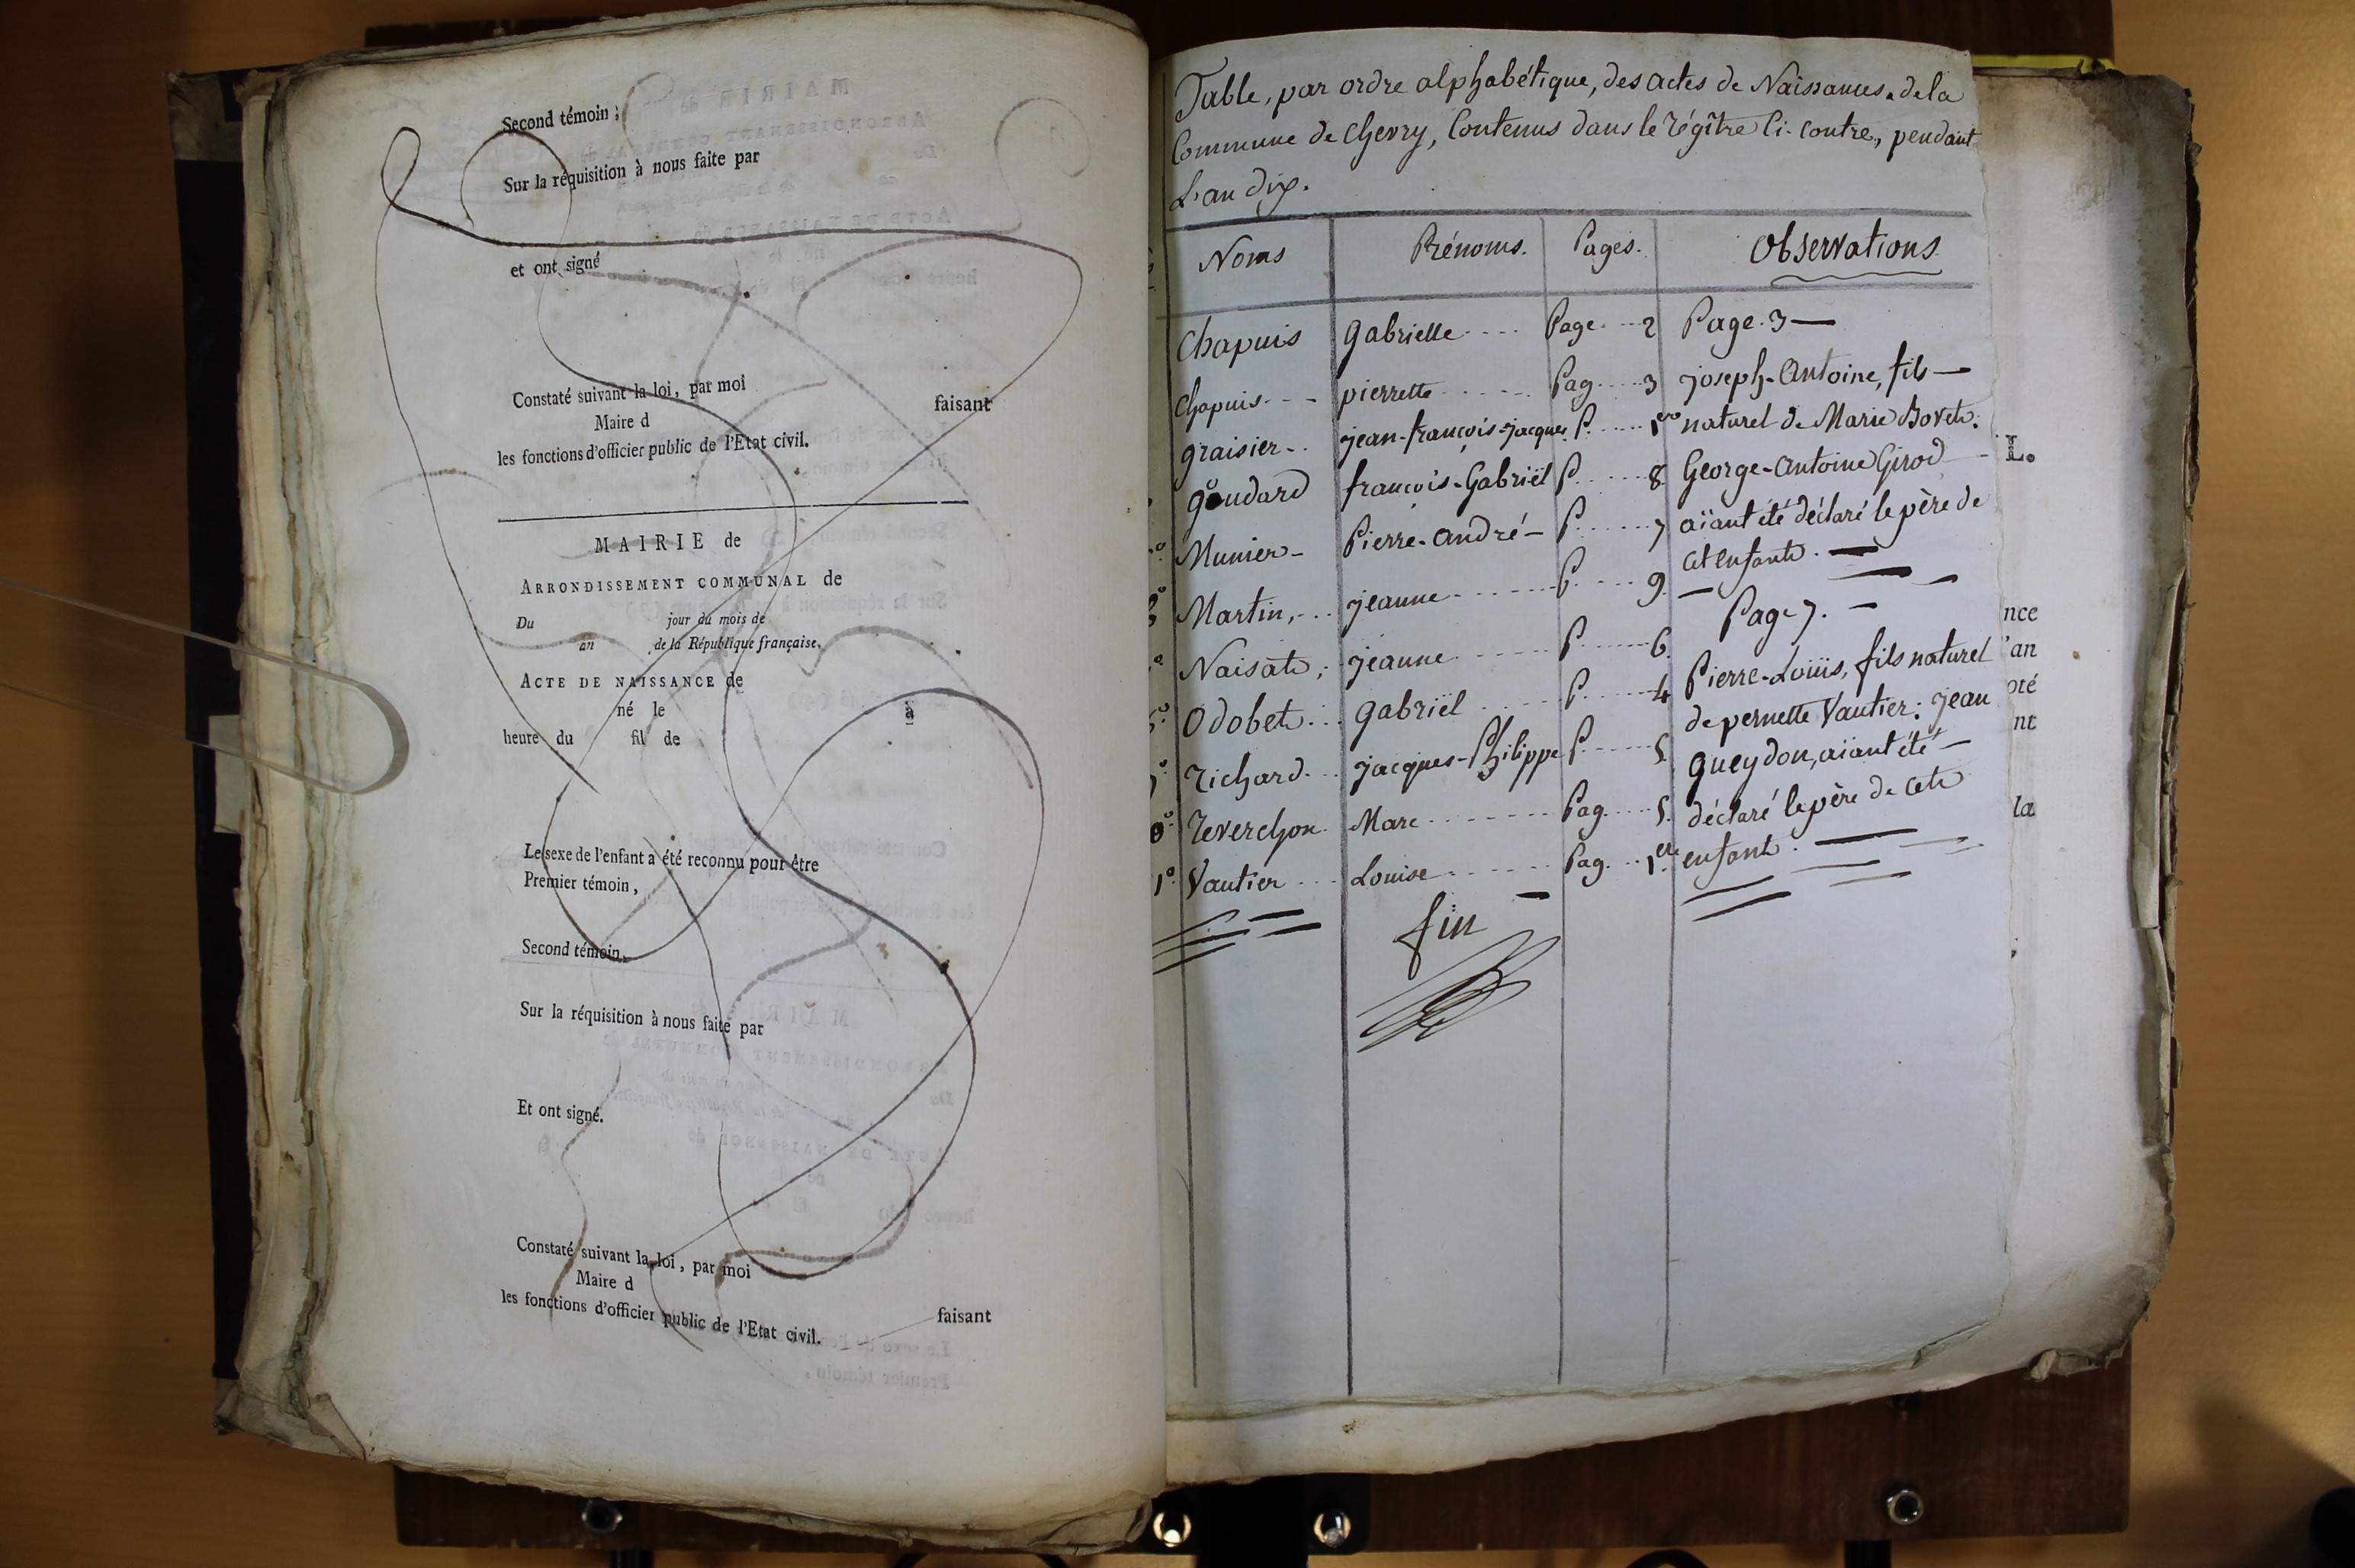 Second témoin ;
Sur la réquisition à nous faite par
et ont signé
Constaté suivant la loi, par moi
Maire d faisant
les fonctions d'officier public de l'Etat civil.
MAIRIE de
ARRONDISSEMENT COMMUNAL de
Du jour du mois de
an de la République française.
ACTE DE NAISSANCE de
né le à
heure du fil de
Le sexe de l'enfant a été reconnu pour être
Premier témoin,
Second témoin,
Sur la réquisition à nous faite par
Et ont signé.
Constaté suivant la loi, par moi
Maire d faisant
les fonctions d'officier public de l'Etat civil.
Table, par ordre alphabétique, des actes de Naissances de la
Commune de Chevry, Contenus dans le régître Ci-contre, pendant
L'an dix.
Noms Prénoms. Pages. Observations
Chapuis Gabrielle Page 2 Page. 3
Chapuis pierrette Pag 3 joseph-Antoine, fils
graisier jean-françois-jacques P. 1ere naturel de Marie Bovet.
goudard françois-Gabriël P. 8 George-Antoine Girod
Munier Pierre-André P. 7 aïant été déclaré le père de
Martin, jeanne P. 9. cet enfant.
Naisat; jeanne P. 6. Page 7.
Odobet Gabriël P. 4 Pierre-Louïs, fils naturel
Richard jacques-Philippe P. 5. de pernette Vautier; jean
Reverchon Marc Pag. 5. Gueydon, aïant été
1° Vautier Louise Pag. 1ere déclaré le père de cet
enfant.
fin
L.
nce
'an
oté
nt
la